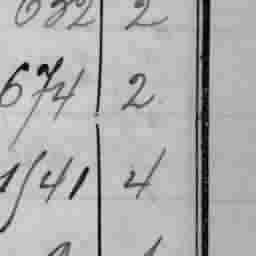 632 2
674 2
1541 4